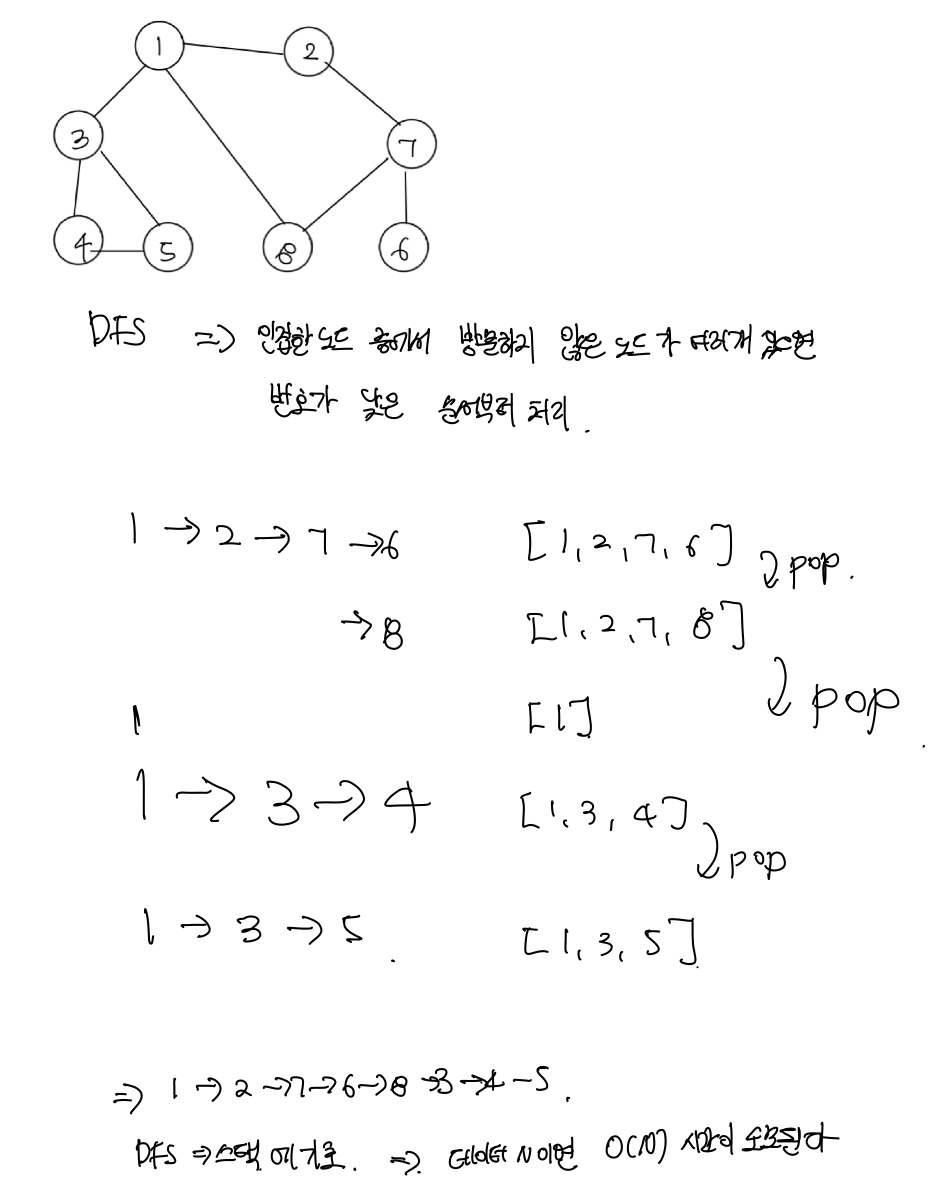 1 2
3 7
4 5 8 6
DFS => 인접한 노드 중에서 방문하지 않은 노드가 여러개 있으면
번호가 낮은 순서부터 처리.
1 → 2 → 7 → 6 [1, 2, 7, 6] pop.
→ 8 [1, 2, 7, 8]
pop
1 [1]
1 → 3 → 4 [1, 3, 4]
pop
1 → 3 → 5. [1, 3, 5]
=> 1 → 2 → 7 → 6 → 8 → 3 → 4 - 5.
DFS => 스택 => 데이터 N이면 O(N) 시간이 소요된다